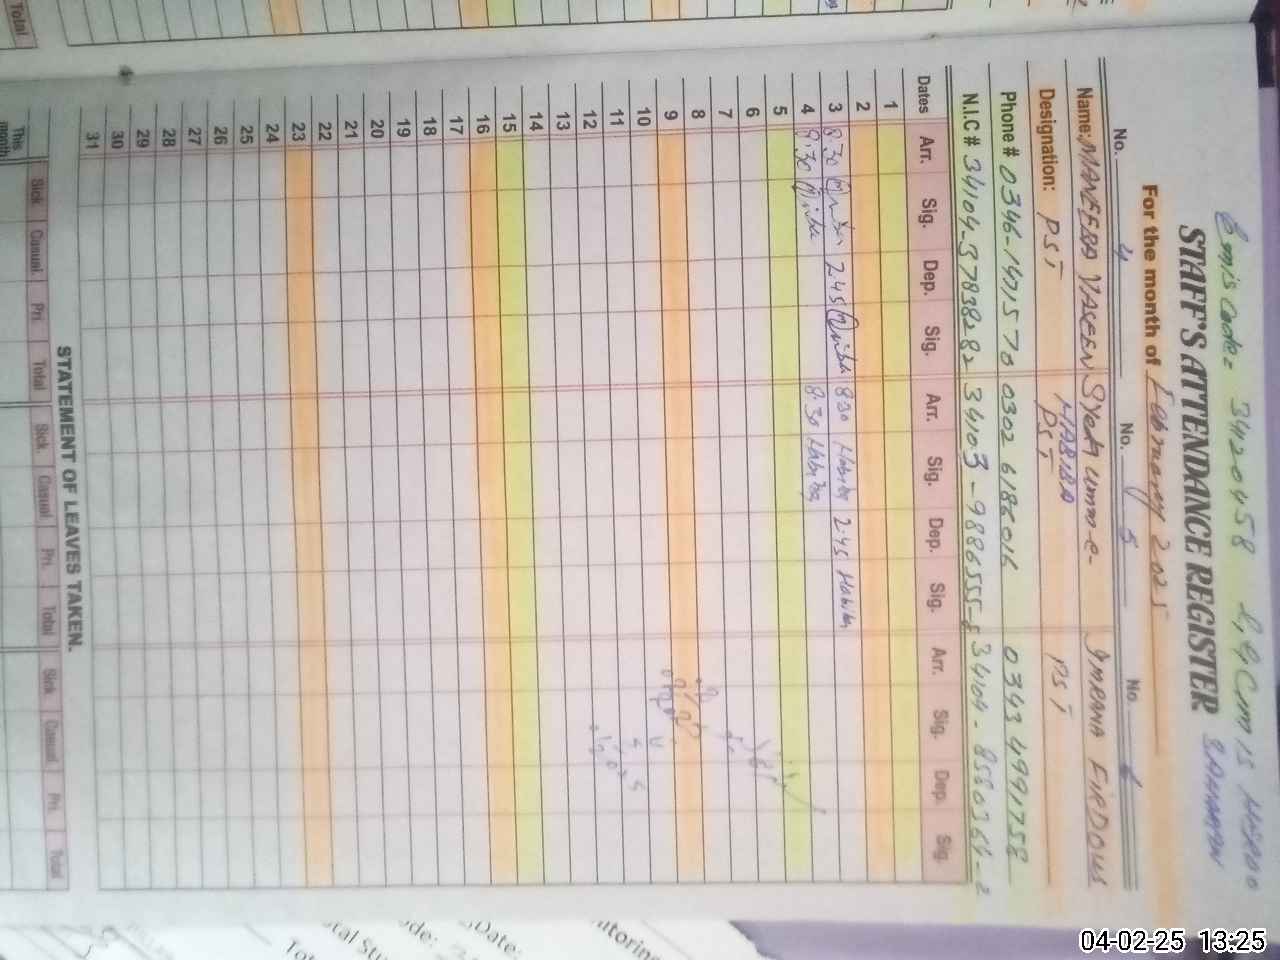 Emis Code: 3420458 G.G.C.M.
STAFF'S ATTENDANCE REGISTER
For the month of February 2025
No. 4 No. 5 No. 6
Name: MANEEBA YASEEN Syeda umm-e- HABIBA IMRANA FIRDOUS
Designation: PST PST PST
Phone # 0346-1471570 0302 6186016 0343 4991758
N.I.C # 34104-3783828 2 34103-9886555-8 34104-8550364-2
Dates Arr. Sig. Dep. Sig. Arr. Sig. Dep. Sig. Arr. Sig. Dep. Sig.
1
2
3 8:30 2:45 8:30 Habiba 2:45 Habiba
4 8:30 8:30 Habiba
5
6
7
8
9
10
11
12
13
14
15
16
17
18
19
20
21
22
23
24
25
26
27
28
29
30
31
STATEMENT OF LEAVES TAKEN.
Sick Casual Pri. Total Sick Casual Pri. Total Sick Casual Pri. Total
This month
Total
04-02-25 13:25